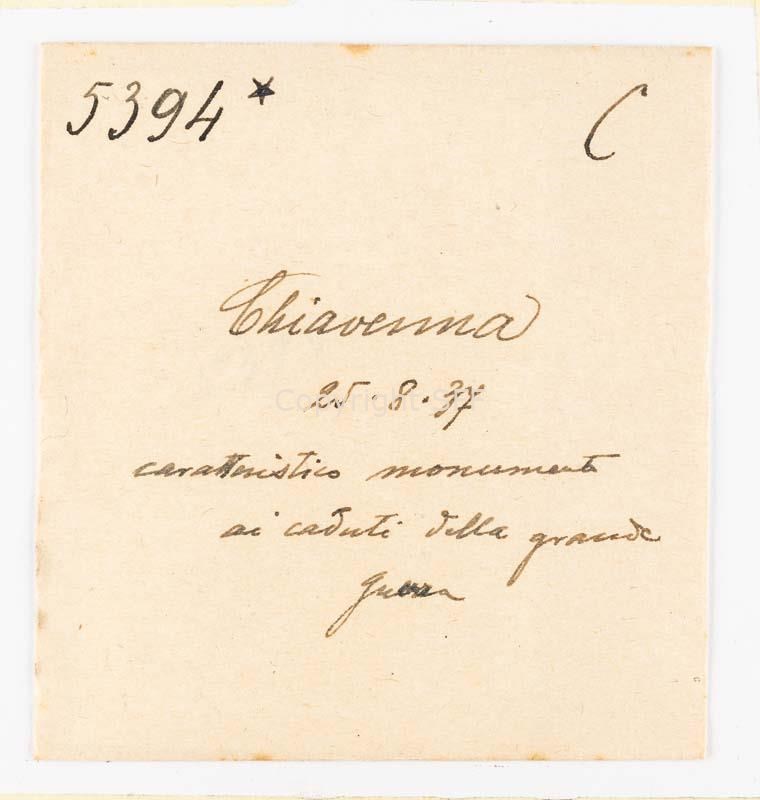 5394* C
Chiavenna
25.8.37
caratteristico monumento
ai caduti della grande
guerra